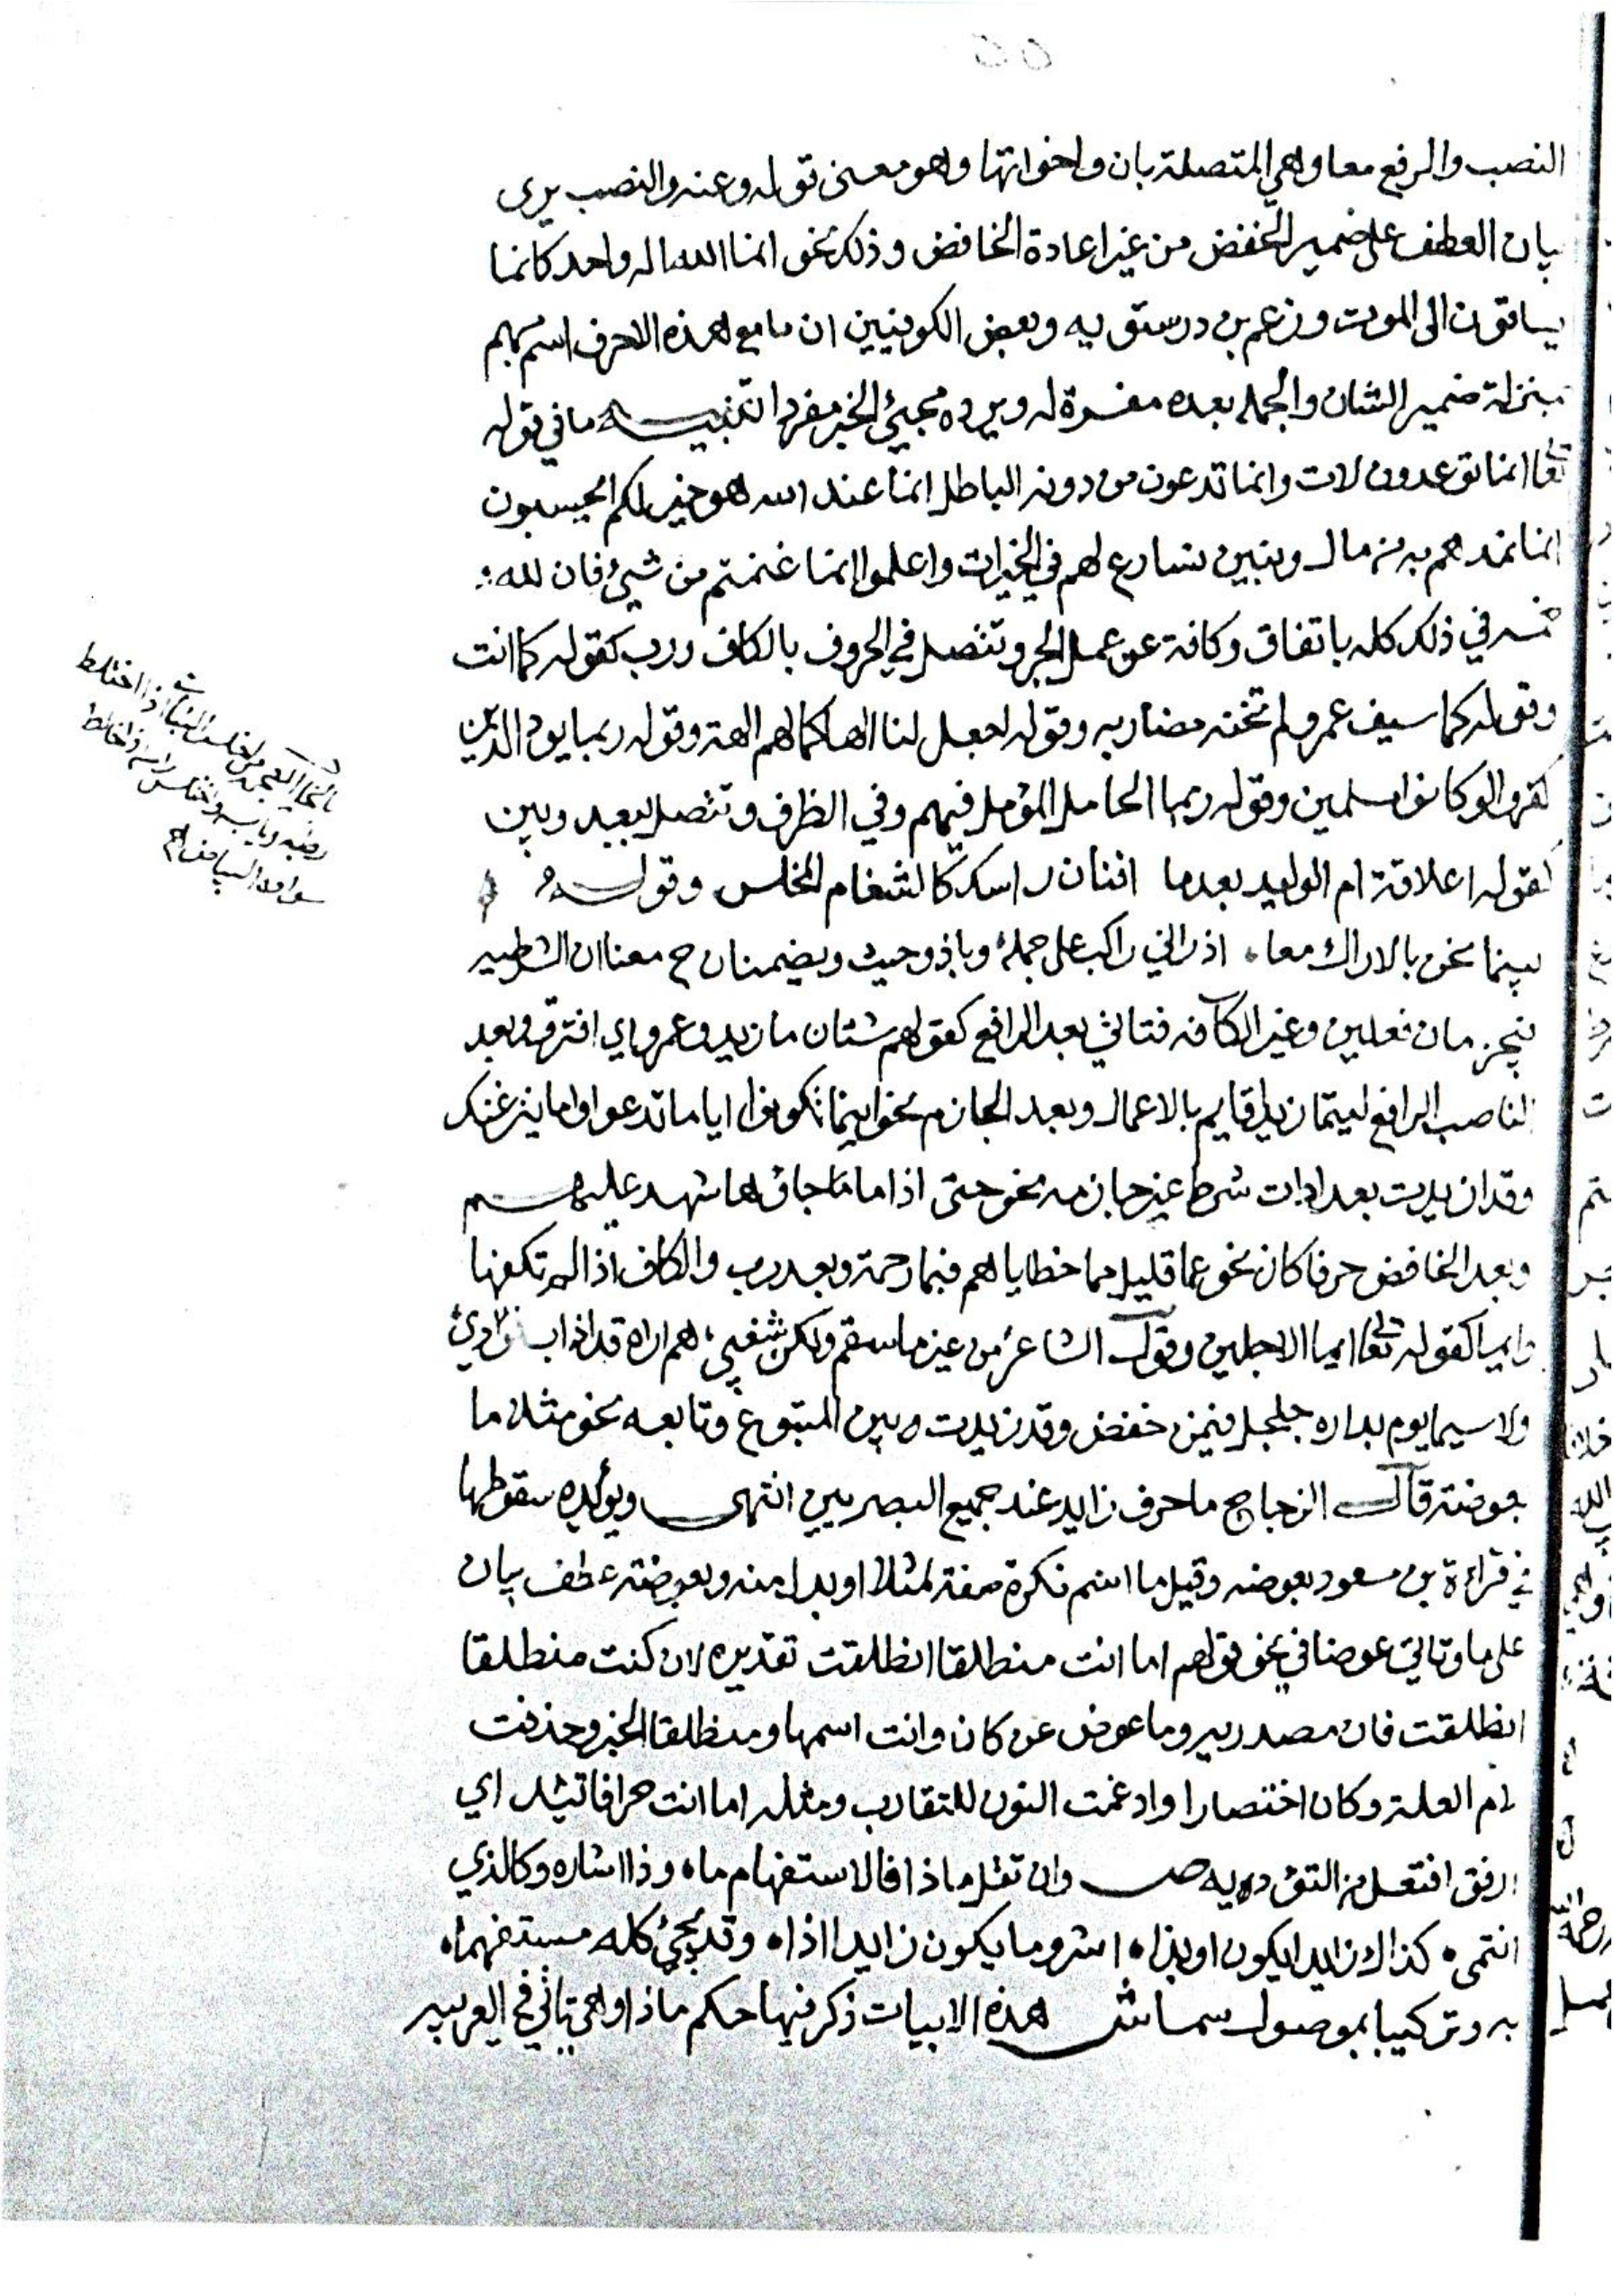 النصب والرفع معا وهي المتصلة بان واخواتها وهو معنى قوله وعنه والنصب يرى
بان العطف على ضمير الخفض من غير اعادة الخافض وذلك نحو انما الله اله واحد كانما
يساقون الى الموت وزعم بن درستويه وبعض الكوفيين ان ما مع هذه الاحرف اسم مبهم
بمنزلة ضمير الشان والجمله بعده مفسرة له ويرده مجيئ الخبر مفردا تنبيه ما في قوله
تعا انما توعدون لات وانما تدعون من دونه الباطل انما عند الله هو خير لكم ايحسبون
انما نمدهم به من مال وبنين نسارع لهم في الخيرات واعلموا انما غنمتم من شيئ فان لله
خمسه في ذلك كله باتفاق وكافة عن عمل الجر وتتصل في الحروف بالكاف ورب كقوله كما انت
وقوله كما سيف عمرو لم تخنه مضاربه وقوله اجعل لنا الها كما لهم الهة وقوله ربما يود الذين
كفروا لو كانوا مسلمين وقوله ربما الجامل المؤمل فيهم وفي الظرف وتتصل ببعد وبين
كقوله اعلاقة ام الوليد بعدما افنان راسك كالثغام المخلس وقوله
بينما نحن بالاراك معا اذ اتى راكب على جمله وباذ وحيث ويضمنان ح معنا ان الشرطيه
فيجزمان فعلين وغير الكافه فتاتي بعد الرافع كقولهم شتان ما زيد وعمرو اي افترقو وبعد
الناصب الرافع ليتما زيدا قايم بالاعمال وبعد الجازم نحو اينما تكونوا اياما تدعوا واما ينزغنك
وقد زيدت بعد ادات شرط غير جازمه نحو حتى اذا ما جاؤها شهد عليهم
وبعد الخافض حرفا كان نحو عما قليل مما خطاياهم فبما رحمة وبعد رب والكاف اذا لم تكفها
وايما كقوله تعا ايما الاجلين وقول الشاعر من غير ما سقم ولكن شفني هم اراه قد اذاب فؤادي
ولا سيما يوم بداره جلجل فيمن خفض وقد زيدت وبين المتبوع وتابعه نحو مثلا ما
بعوضة قال الزجاج ما حرف زايد عند جميع البصريين انتهى ويؤيده سقوطها
في قراءة بن مسعود بعوضه وقيل ما اسم نكرة صفة لمثلا او بدل منه وبعوضة عطف بيان
على ما وتاتي عوضا في نحو قولهم اما انت منطلقا انطلقت تقديره لان كنت منطلقا
انطلقت فان مصدريه وما عوض عن كان وانت اسمها ومنطلقا الخبر وحذفت
لام العلة وكان اختصارا وادغمت النون للتقارب ومثله اما انت حرا فاتئد اي
ارفق افتعل من التؤده يه ص وان تقل ماذا فالاستفهام ما وذا اشاره وكالذي
انتمى كذاك زايدا يكون او بذا اشر وما يكون زايدا اذا وقد يجيئ كله مستفهما
به وتركيبا بموصول سما ش هذه الابيات ذكر فيها حكم ماذا وهي تاتي في العربيه